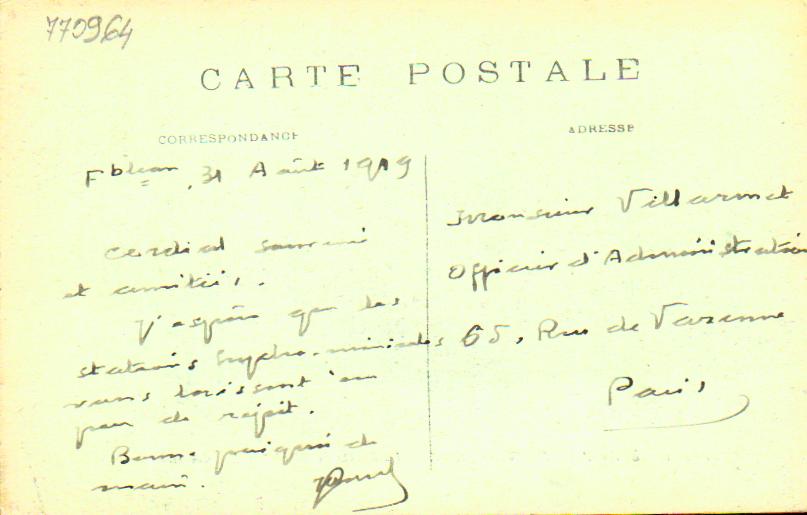 770964
CARTE POSTALE
CORRESPONDANCE
Fbleau, 31 Août 1919
Cordial souvenir
et amitiés.
J'espère que les
stations hydro-minérales
vous laissent un
peu de répit.
Bonne poignée de
main.
ADRESSE
Monsieur Villarmet
Officier d'Administration
65, Rue de Varenne
Paris